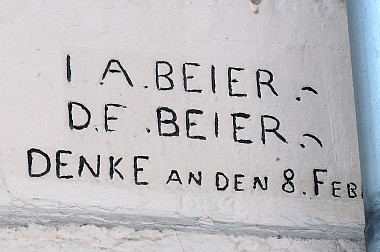 I A. BEIER.
D.E. BEIER.
DENKE AN DEN 8. FEB.